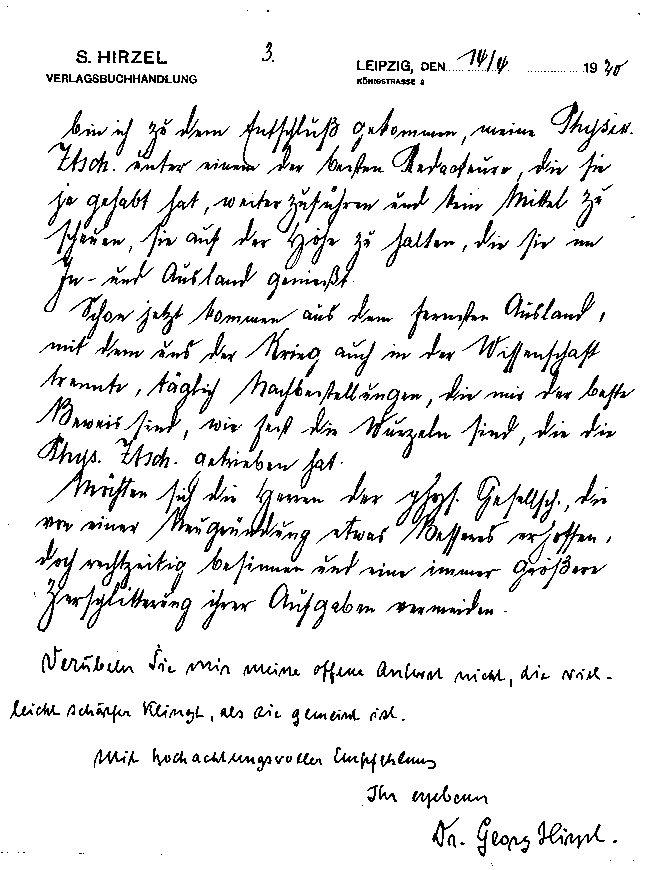 S. HIRZEL
VERLAGSBUCHHANDLUNG
3.
LEIPZIG, DEN 14/4 1920
KÖNIGSTRASSE 2
bin ich zu dem Entschluß gekommen, meine Physik.
Ztsch. unter einem der besten Redacteure, die sie
je gehabt hat, weiterzuführen und kein Mittel zu
scheuen, sie auf der Höhe zu halten, die sie im
In- und Ausland genießt.
Schon jetzt kommen aus dem fernsten Ausland,
mit dem uns der Krieg auch in der Wissenschaft
trennte, täglich Nachbestellungen, die mir der beste
Beweis sind, wie fest die Wurzeln sind, die die
Phys. Ztsch. getrieben hat.
Möchten sich die Herren der phys. Gesellsch., die
von einer Neugründung etwas Besseres erhoffen,
doch rechtzeitig besinnen und eine immer größere
Zersplitterung ihrer Aufgaben vermeiden.
Verübeln Sie mir meine offene Antwort nicht, die viel-
leicht schärfer klingt, als sie gemeint ist.
Mit hochachtungsvoller Empfehlung
Ihr ergebener
Dr. Georg Hirzel.